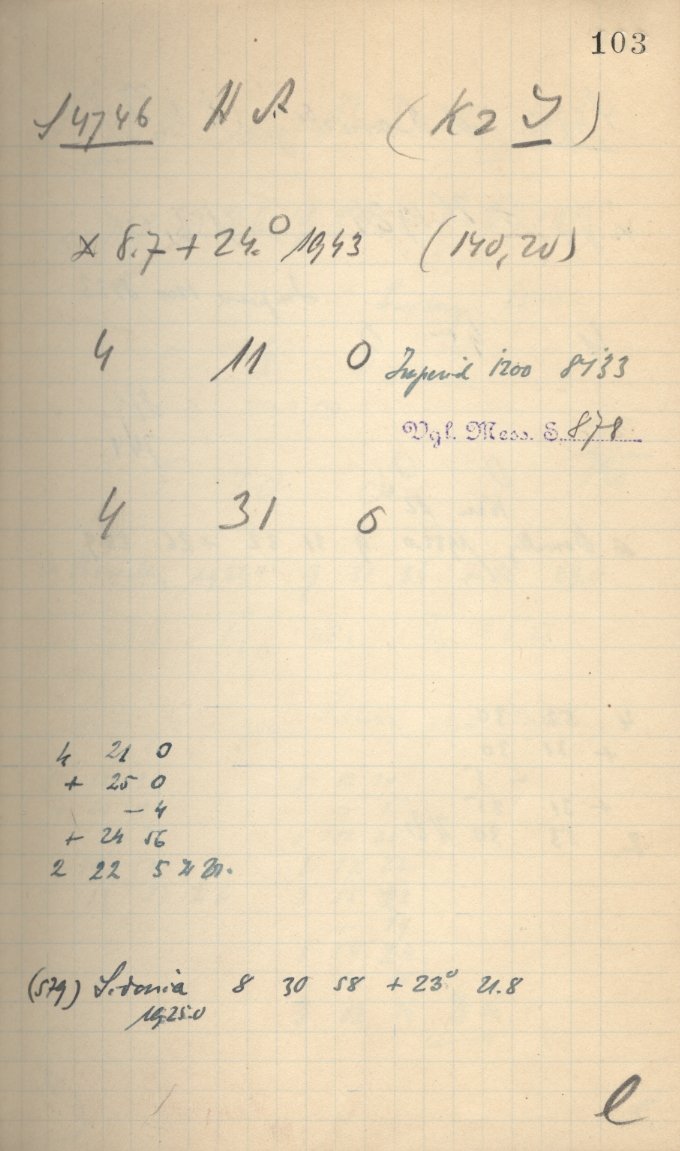 103
S 4746 H A (K 2 J)
× 8.7 + 24.° 1943 (140,20)
4 11 0 Imperial 1200 8433
Vgl. Mess. S. 878
4 31 0
4 21 0
+ 25 0
- 4
+ 24 56
2 22 5
(579) Sidonia 8 30 58 + 23° 21.8
1925.0